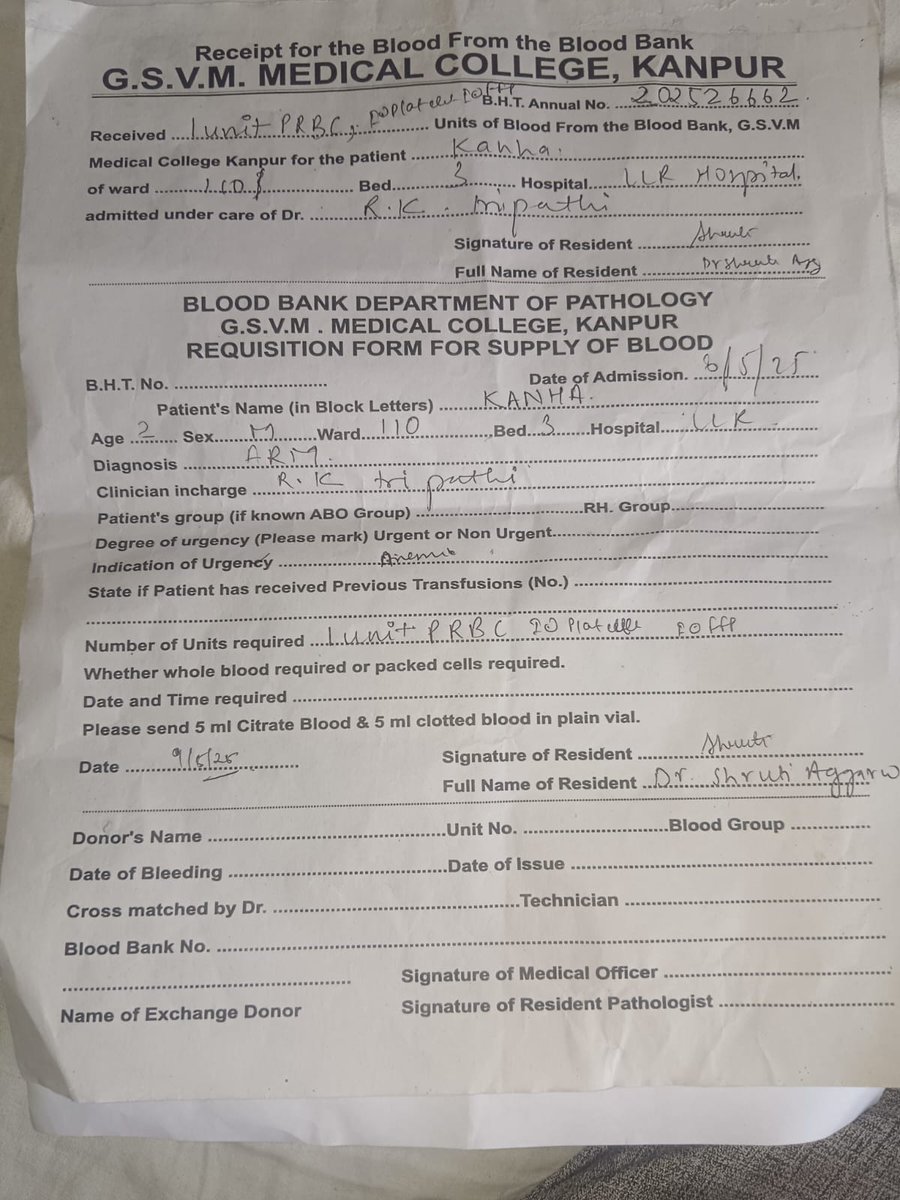 Receipt for the Blood From the Blood Bank
G.S.V.M. MEDICAL COLLEGE, KANPUR
B.H.T. Annual No. 202526662
Received 1 unit PRBC, Platelet FFP Units of Blood From the Blood Bank, G.S.V.M
Medical College Kanpur for the patient Kanha.
of ward Bed 3 Hospital LLR Hospital.
admitted under care of Dr. R.K. tripathi
Signature of Resident Shruti
Full Name of Resident Dr Shruti Agg
BLOOD BANK DEPARTMENT OF PATHOLOGY
G.S.V.M . MEDICAL COLLEGE, KANPUR
REQUISITION FORM FOR SUPPLY OF BLOOD
B.H.T. No. Date of Admission. 8/5/25
Patient's Name (in Block Letters) KANHA.
Age 2 Sex M Ward 110 Bed 3 Hospital LLR
Diagnosis ARM
Clinician incharge R.K tripathi
Patient's group (if known ABO Group) RH. Group
Degree of urgency (Please mark) Urgent or Non Urgent
Indication of Urgency
State if Patient has received Previous Transfusions (No.)
Number of Units required 1 unit PRBC FFP
Whether whole blood required or packed cells required.
Date and Time required
Please send 5 ml Citrate Blood & 5 ml clotted blood in plain vial.
Date 9/5/25 Signature of Resident Shruti
Full Name of Resident Dr. Shruti Aggarw
Donor's Name Unit No. Blood Group
Date of Bleeding Date of Issue
Cross matched by Dr. Technician
Blood Bank No.
Signature of Medical Officer
Name of Exchange Donor Signature of Resident Pathologist